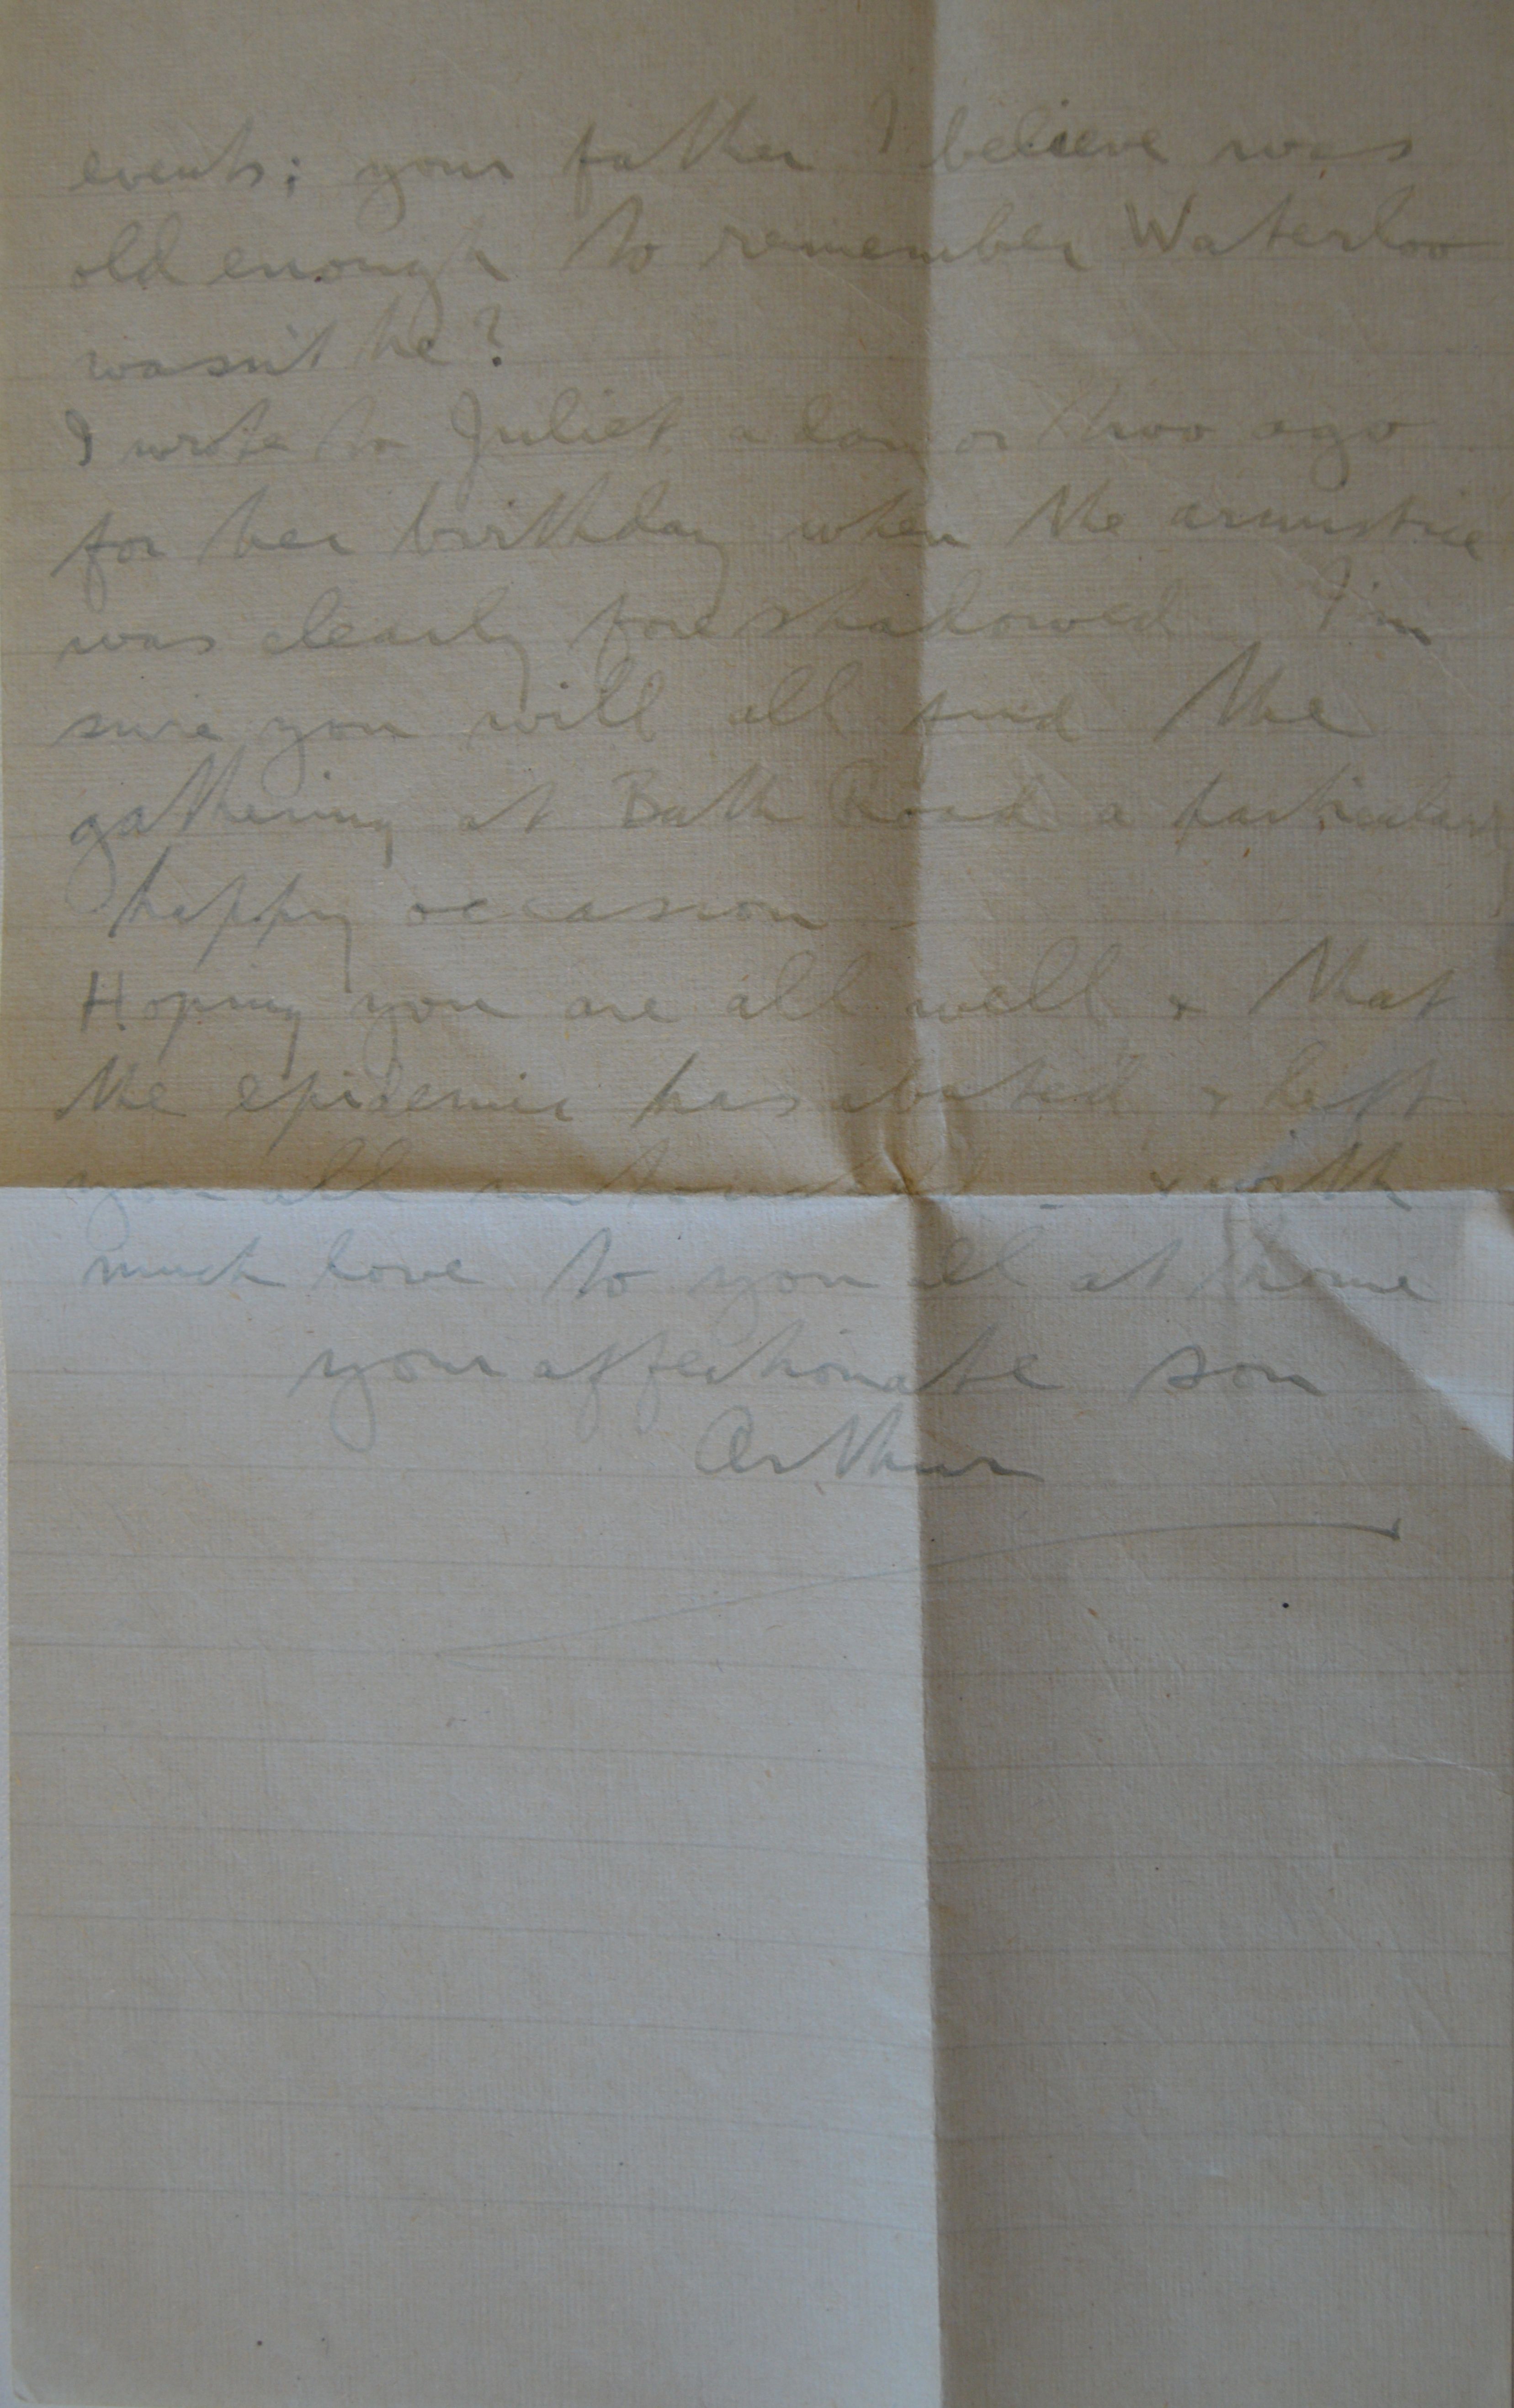 events; your father I believe was
old enough to remember Waterloo
wasn't he?
I wrote to Juliet a day or two ago
for her birthday when the armistice
was clearly foreshadowed I'm
sure you will all find the
gathering at Bath Road a particularly
happy occasion
Hoping you are all well & that
the epidemic has abated & left
you all untouched & with
much love to you all at home
your affectionate son
Arthur